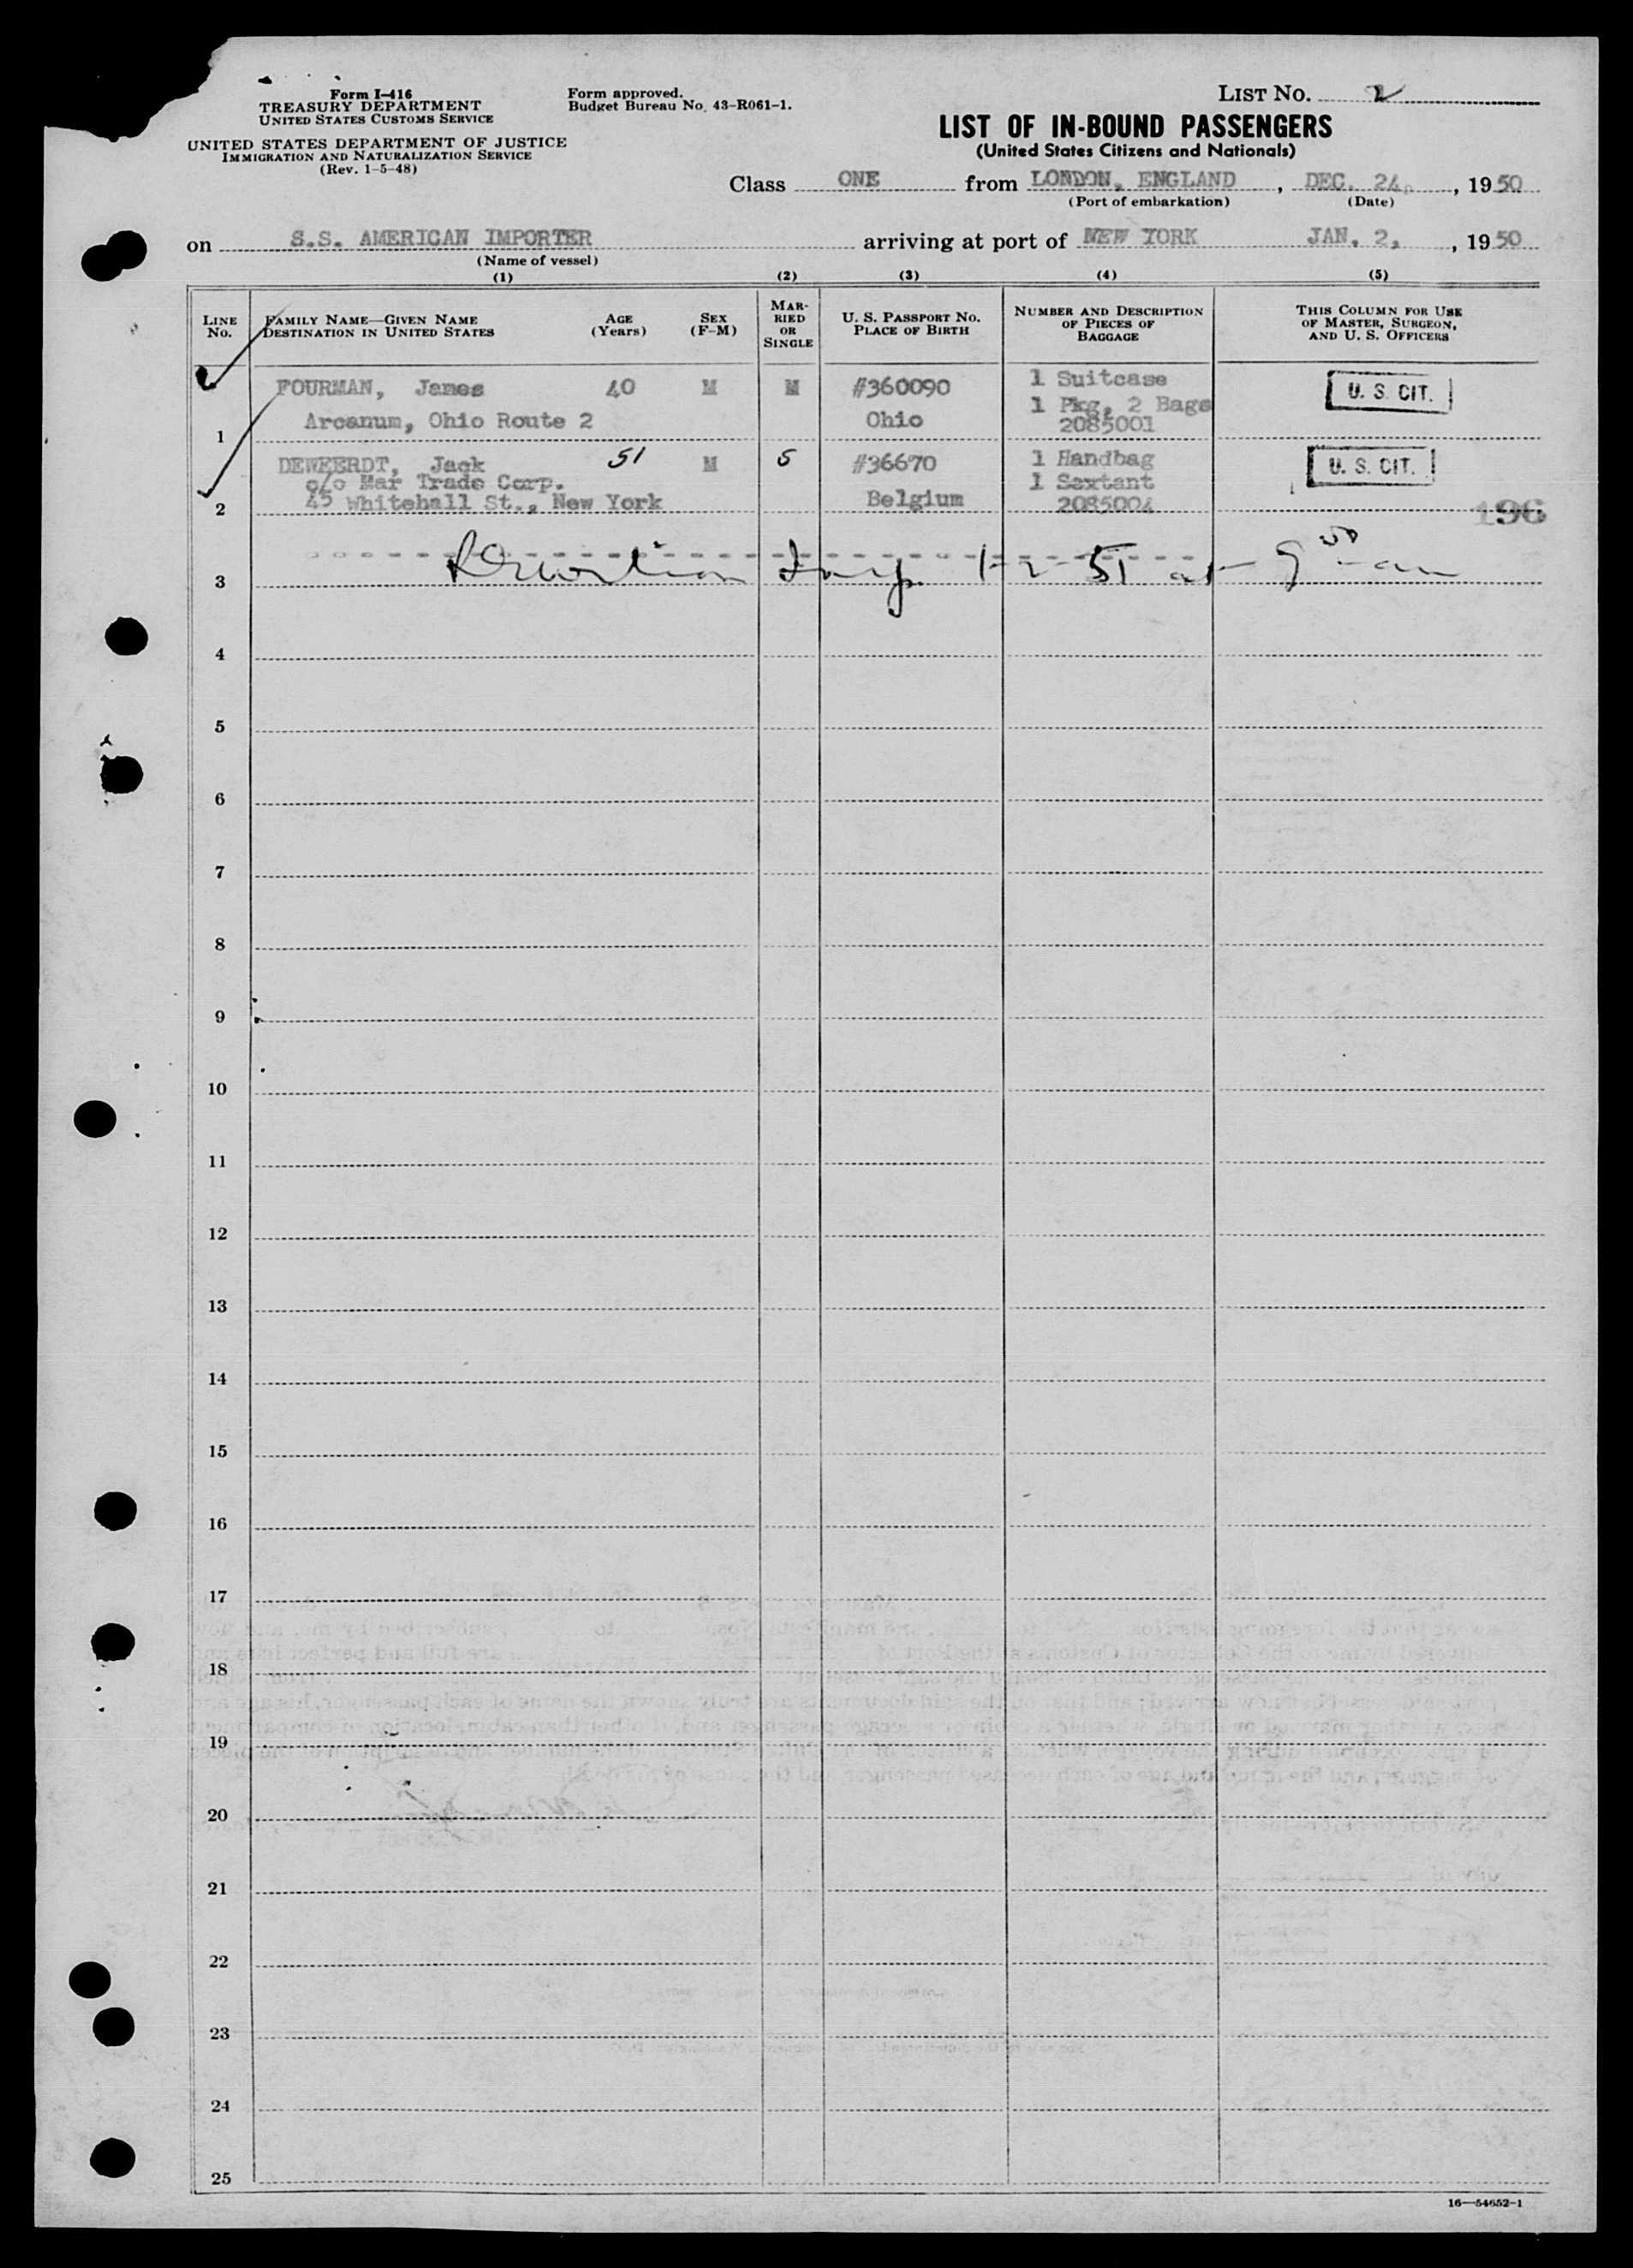 Form I-416
TREASURY DEPARTMENT
UNITED STATES CUSTOMS SERVICE
UNITED STATES DEPARTMENT OF JUSTICE
IMMIGRATION AND NATURALIZATION SERVICE
(Rev. 1-5-48)
Form approved.
Budget Bureau No. 43-R061-1.
LIST No. 2
LIST OF IN-BOUND PASSENGERS
(United States Citizens and Nationals)
Class ONE from LONDON, ENGLAND, DEC. 24, 1950
(Port of embarkation) (Date)
on S.S. AMERICAN IMPORTER arriving at port of NEW YORK JAN. 2, 1950
(Name of vessel)
(1) (2) (3) (4) (5)
LINE No.
FAMILY NAME—GIVEN NAME
DESTINATION IN UNITED STATES
AGE (Years)
SEX (F-M)
MARRIED OR SINGLE
U. S. PASSPORT No.
PLACE OF BIRTH
NUMBER AND DESCRIPTION OF PIECES OF BAGGAGE
THIS COLUMN FOR USE OF MASTER, SURGEON, AND U. S. OFFICERS
FOURMAN, James 40 M M #360090 1 Suitcase U. S. CIT.
1 Pkg, 2 Bags
1 Arcanum, Ohio Route 2 Ohio 2085001
DEWEERDT, Jack 51 M S #36670 1 Handbag U. S. CIT.
c/o Mar Trade Corp. 1 Sextant
2 45 Whitehall St., New York Belgium 2085004 196
3 1-2-51 at 9 00 am
4
5
6
7
8
9
10
11
12
13
14
15
16
17
18
19
20
21
22
23
24
25
16—54652-1